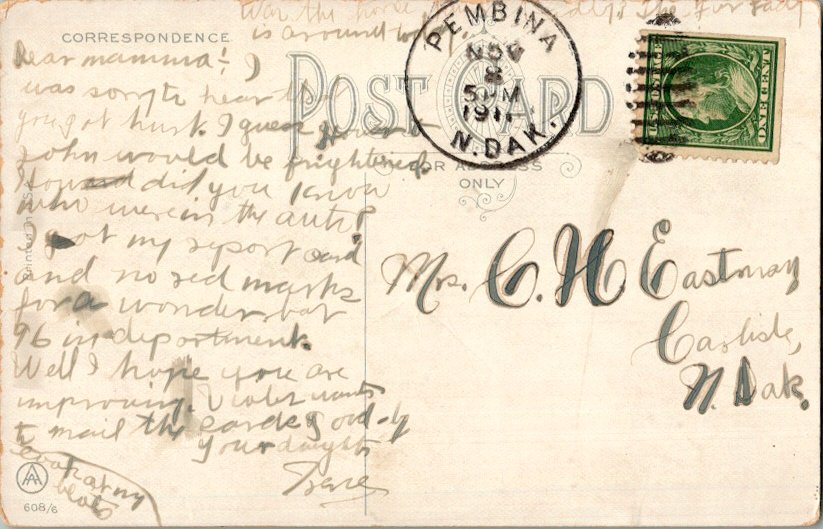 War the horse
is around today.
CORRESPONDENCE
Dear mamma:- I
was sorry to hear that
you got hurt. I guess
John would be frightened.
How did you know
who were in the auto?
I got my report card
and no red marks
for a wonder, but
96 in department.
Well I hope you are
improving. Violet wants
to mail the card. Good-by
Your daughter
Irene
look at my
blots
608/6
POST CARD
FOR ADDRESS
ONLY
PEMBINA
NOV
8
5 PM
1911
N. DAK.
U.S. POSTAGE
ONE CENT
Mrs. C. H. Eastman
Carlisle,
N. Dak.
Printed in